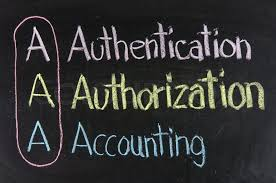 A Authentication
A Authorization
A Accounting